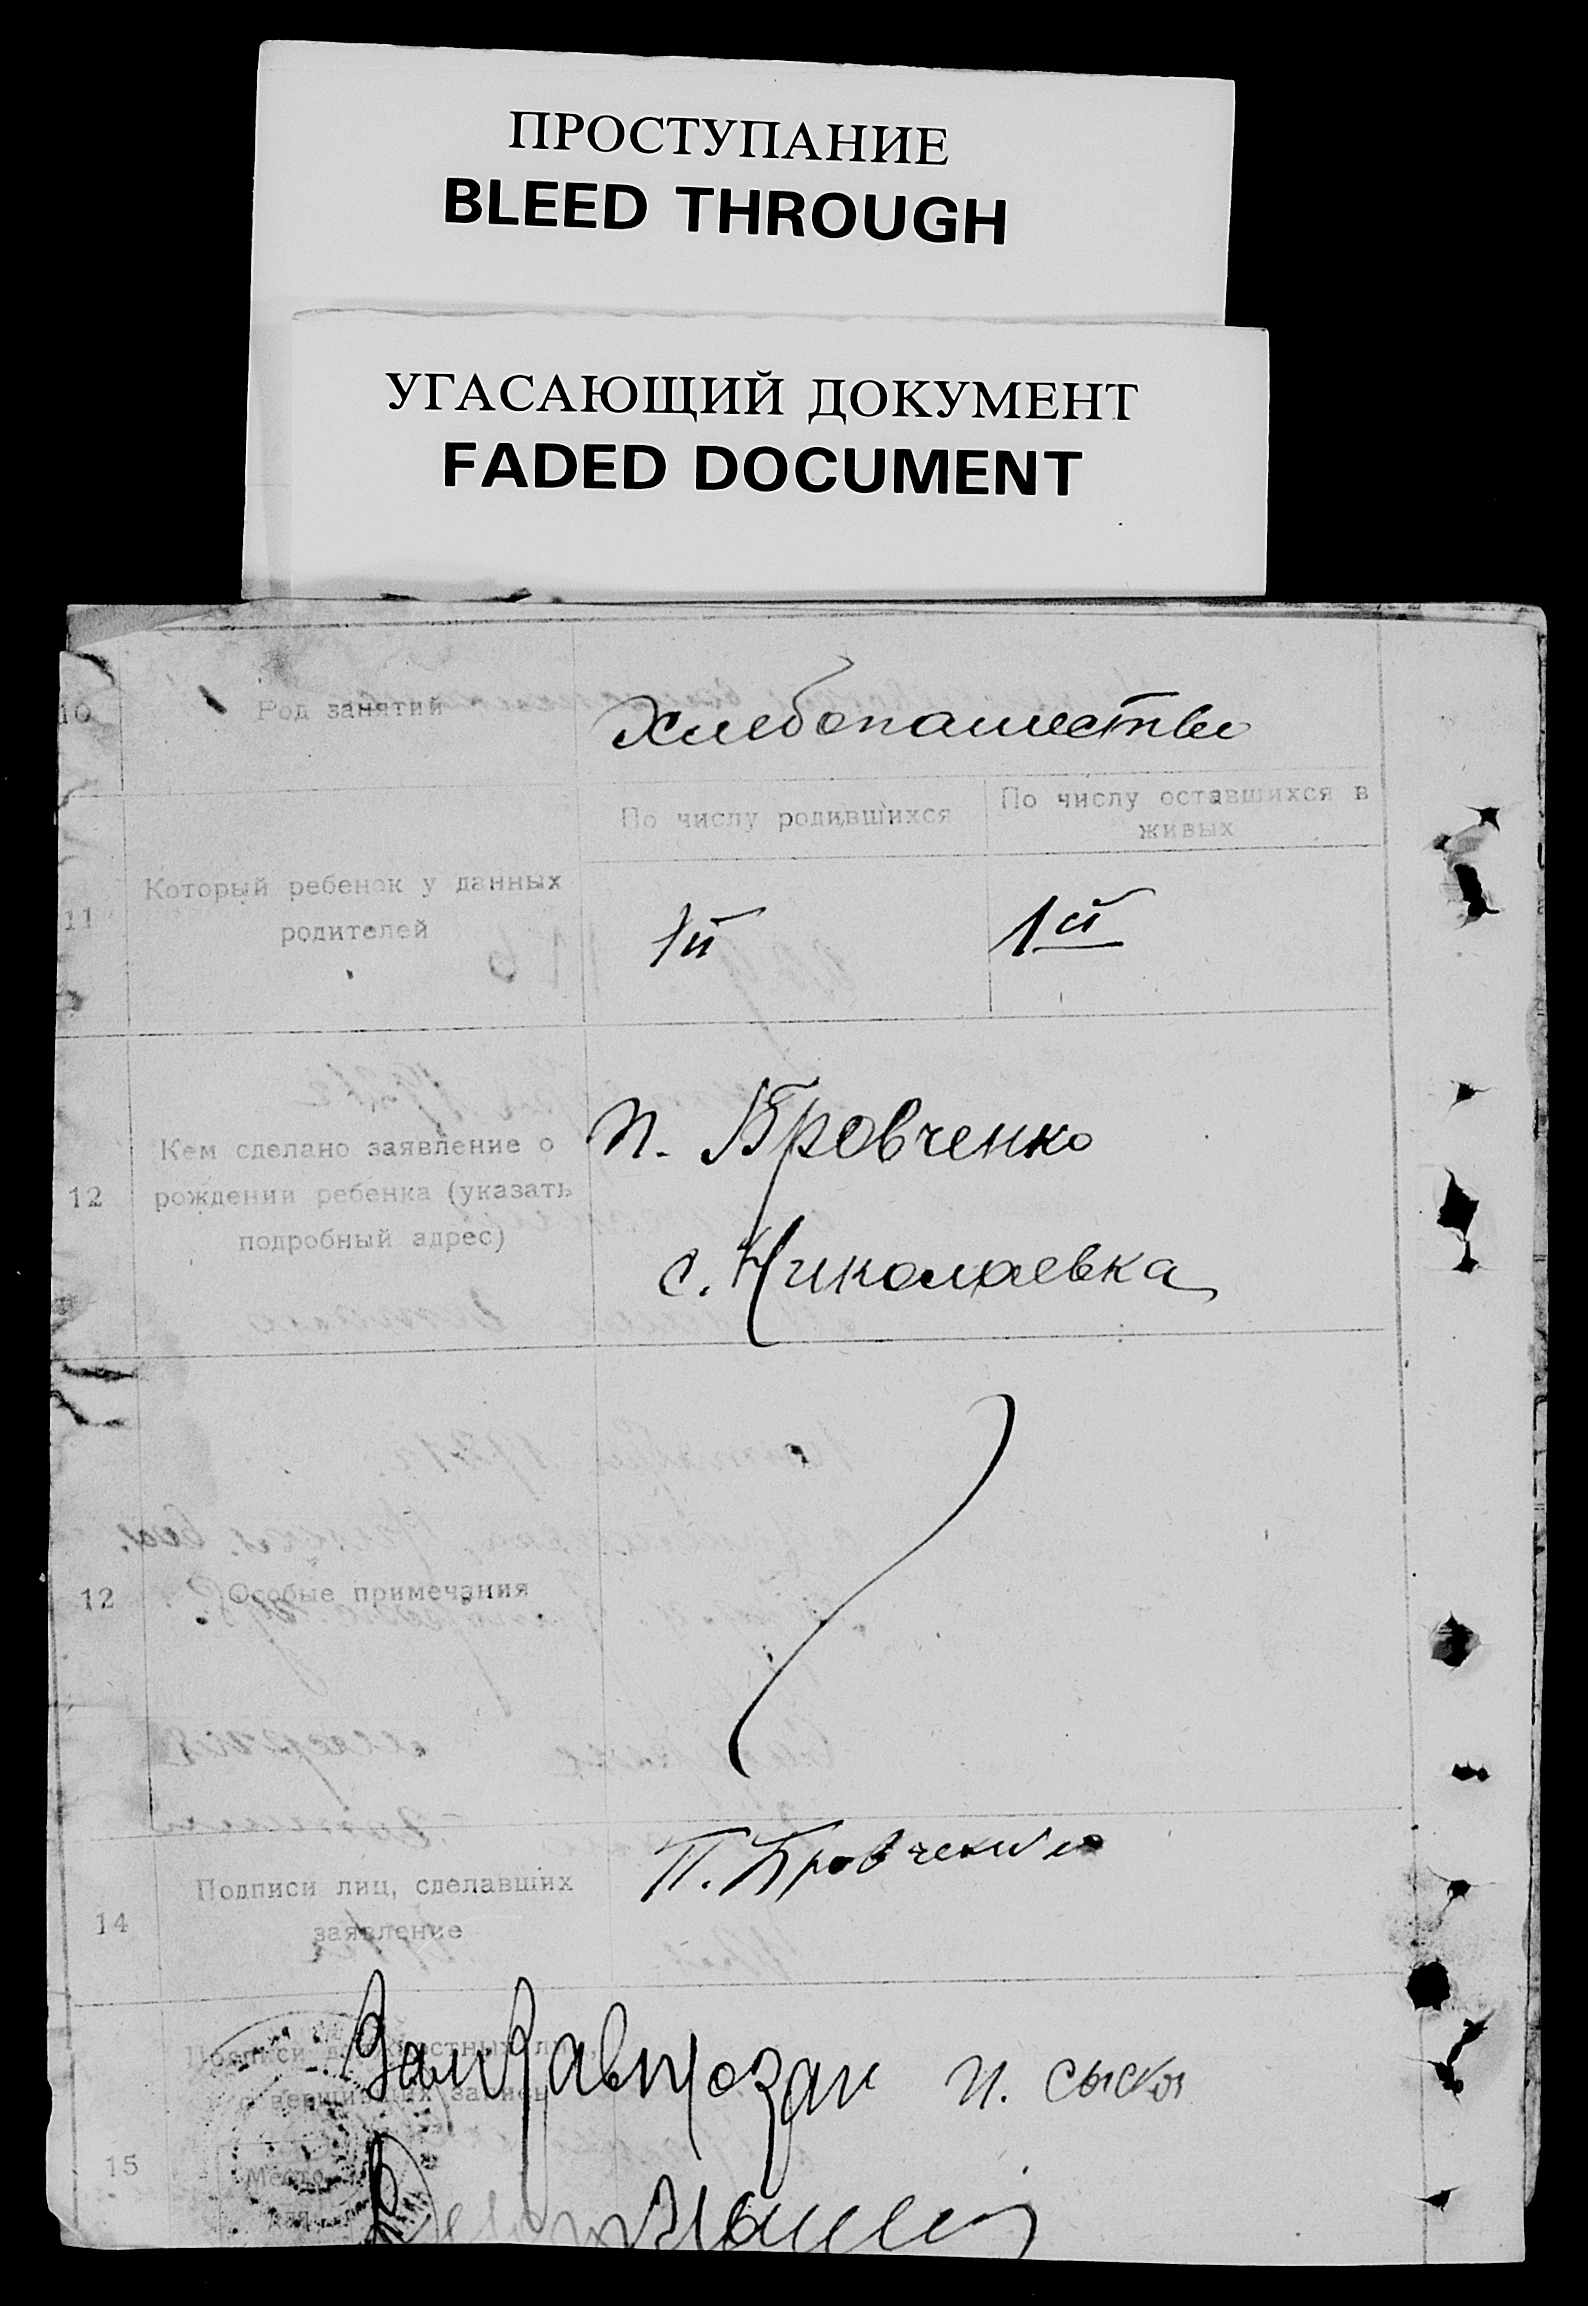 ПРОСТУПАНИЕ
BLEED THROUGH
УГАСАЮЩИЙ ДОКУМЕНТ
FADED DOCUMENT
10 Род занятий Хлебопашество
11 Который ребенок у данных
родителей
По числу родившихся
По числу оставшихся в
живых
1й 1й
12 Кем сделано заявление о
рождении ребенка (указать
подробный адрес)
П. Бровченко
с. Николаевка
12 Особые примечания
14 Подписи лиц, сделавших
заявление
П. Бровченко
15 Подписи
Место
для